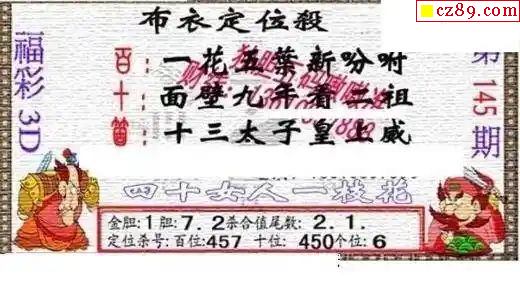 cz89.com
布衣定位殺
福彩3D
第145期
百：一花五葉新吩咐
十：面壁九年看二祖
箇：十三太子皇上威
四十女人一枝花
金胆:1胆:7.2杀合值尾数: 2.1.
定位杀号:百位:457 十位: 450个位: 6